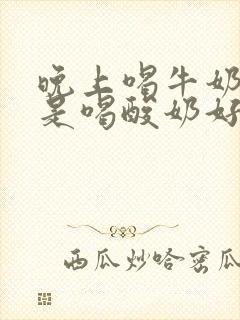 晚上喝牛奶
是喝酸奶好
西瓜炒哈密瓜